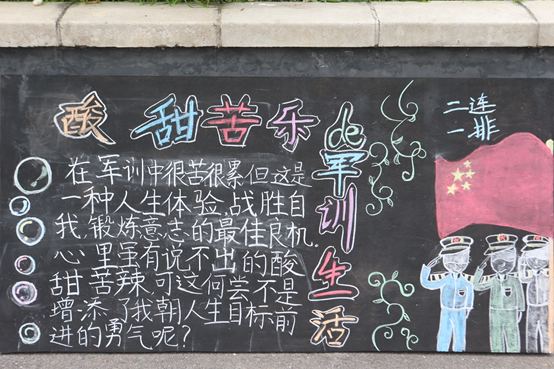 酸甜苦乐
de军训生活
二连
一排
在军训中很苦很累,但这是
一种人生体验,战胜自
我,锻炼意志的最佳良机.
心里虽有说不出的酸
甜苦辣,可这何尝不是
增添了我朝人生目标前
进的勇气呢?